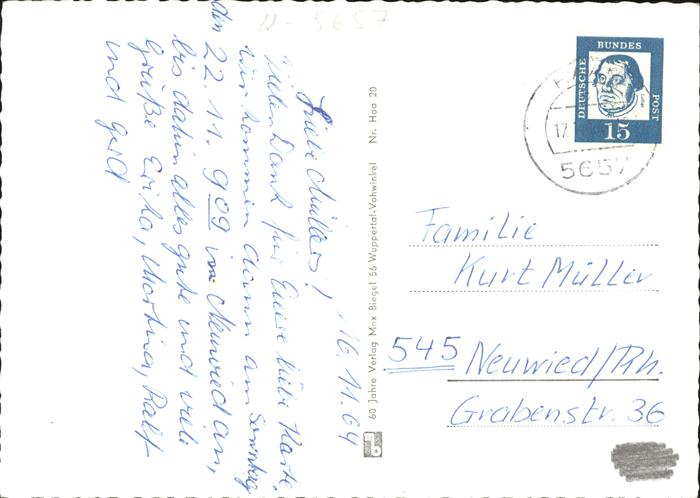 W-5657
Liebe Müllers! 16.11.64
Vielen Dank für Eure liebe Karte
wir kommen dann am Sonntag
den 22.11. 9 09 in Neuwied an,
bis dahin alles gute und viele
Grüße Erika, Martina, Ralf
und Gerd
60 Jahre Verlag Max Biegel 56 Wuppertal-Vohwinkel Nr. Haa 20
DEUTSCHE BUNDES POST
15
17.
5657
Familie
Kurt Müller
545 Neuwied/Rh.
Grabenstr. 36